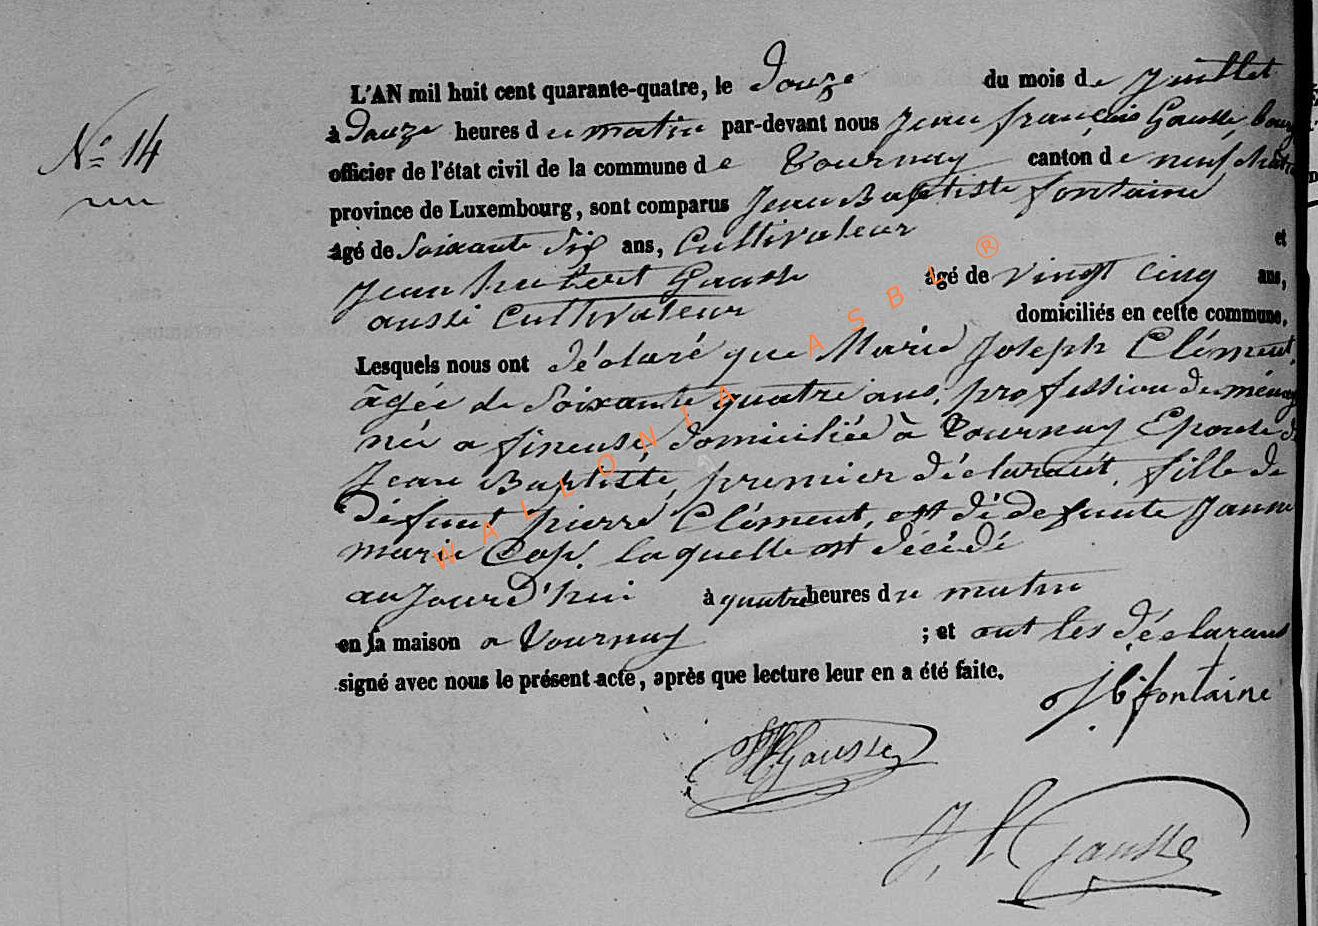 L'AN mil huit cent quarante-quatre, le douze du mois de Juillet
N° 14
à douze heures du matin par-devant nous Jean françois Gausse,
officier de l'état civil de la commune de Tournay canton de neufchâte
province de Luxembourg, sont comparus Jean Baptiste fontaine
âgé de Soixante Six ans, Cultivateur et
Jean hubert Gausse âgé de vingt cinq ans,
aussi Cultivateur domiciliés en cette commune.
Lesquels nous ont déclaré que Marie Joseph Clément,
âgée de Soixante quatre ans, profession de ménag
née a fineuse, domiciliée à Tournay Epouse d
Jean Baptiste, premier déclarant, fille de
défunt pierre Clément, et de defunte Janne
marie laquelle est décédé
aujourd'hui à quatre heures du matin
en sa maison a Tournay ; et ont les déclarans
signé avec nous le présent acte, après que lecture leur en a été faite.
JB fontaine
JH Gausse
J f Gausse
WALLONIA ASBL ®